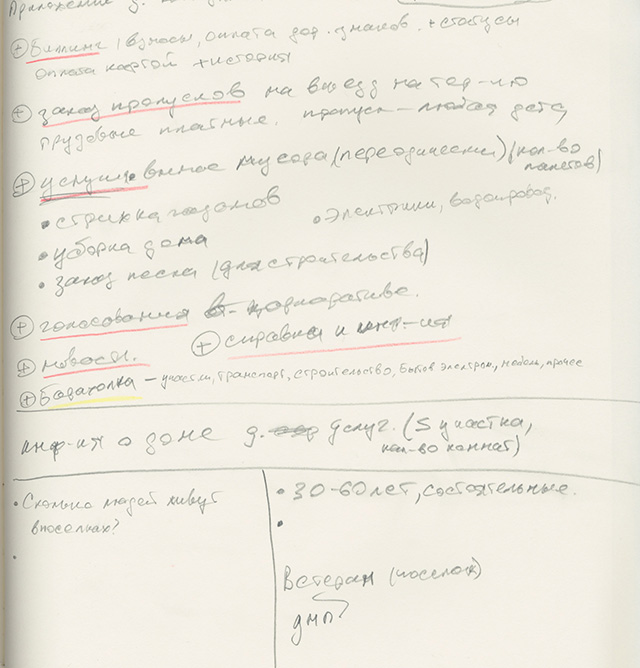 Приложение д.
⊕ биллинг, взносы, оплата дор. знаков. + статусы
оплата картой + история
⊕ заказ пропусков на въезд на тер-ю
трудовые платные. пропуск – любая дата
⊕ услуги • вынос мусора (переодически) (кол-во
пакетов)
• стрижка газонов
• Электрики, водопровод.
• уборка дома
• заказ песка (для строительства)
⊕ голосования
⊕ справки и инф-ия
⊕ новости.
⊕ Барахолка – участки, транспорт, строительство, бытов электрон, мебель, прочее
инф-ия о доме д. услуг. (S участка,
кол-во комнат)
• Сколько людей живут
в поселках?
•
• 30-60 лет, состоятельные.
•
Ветеран (поселок)
днп